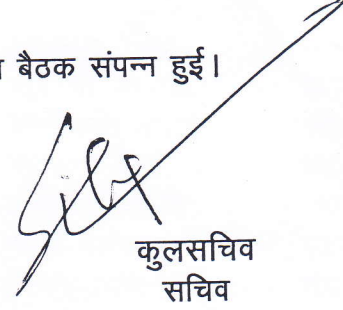 बैठक संपन्न हुई।
कुलसचिव
सचिव